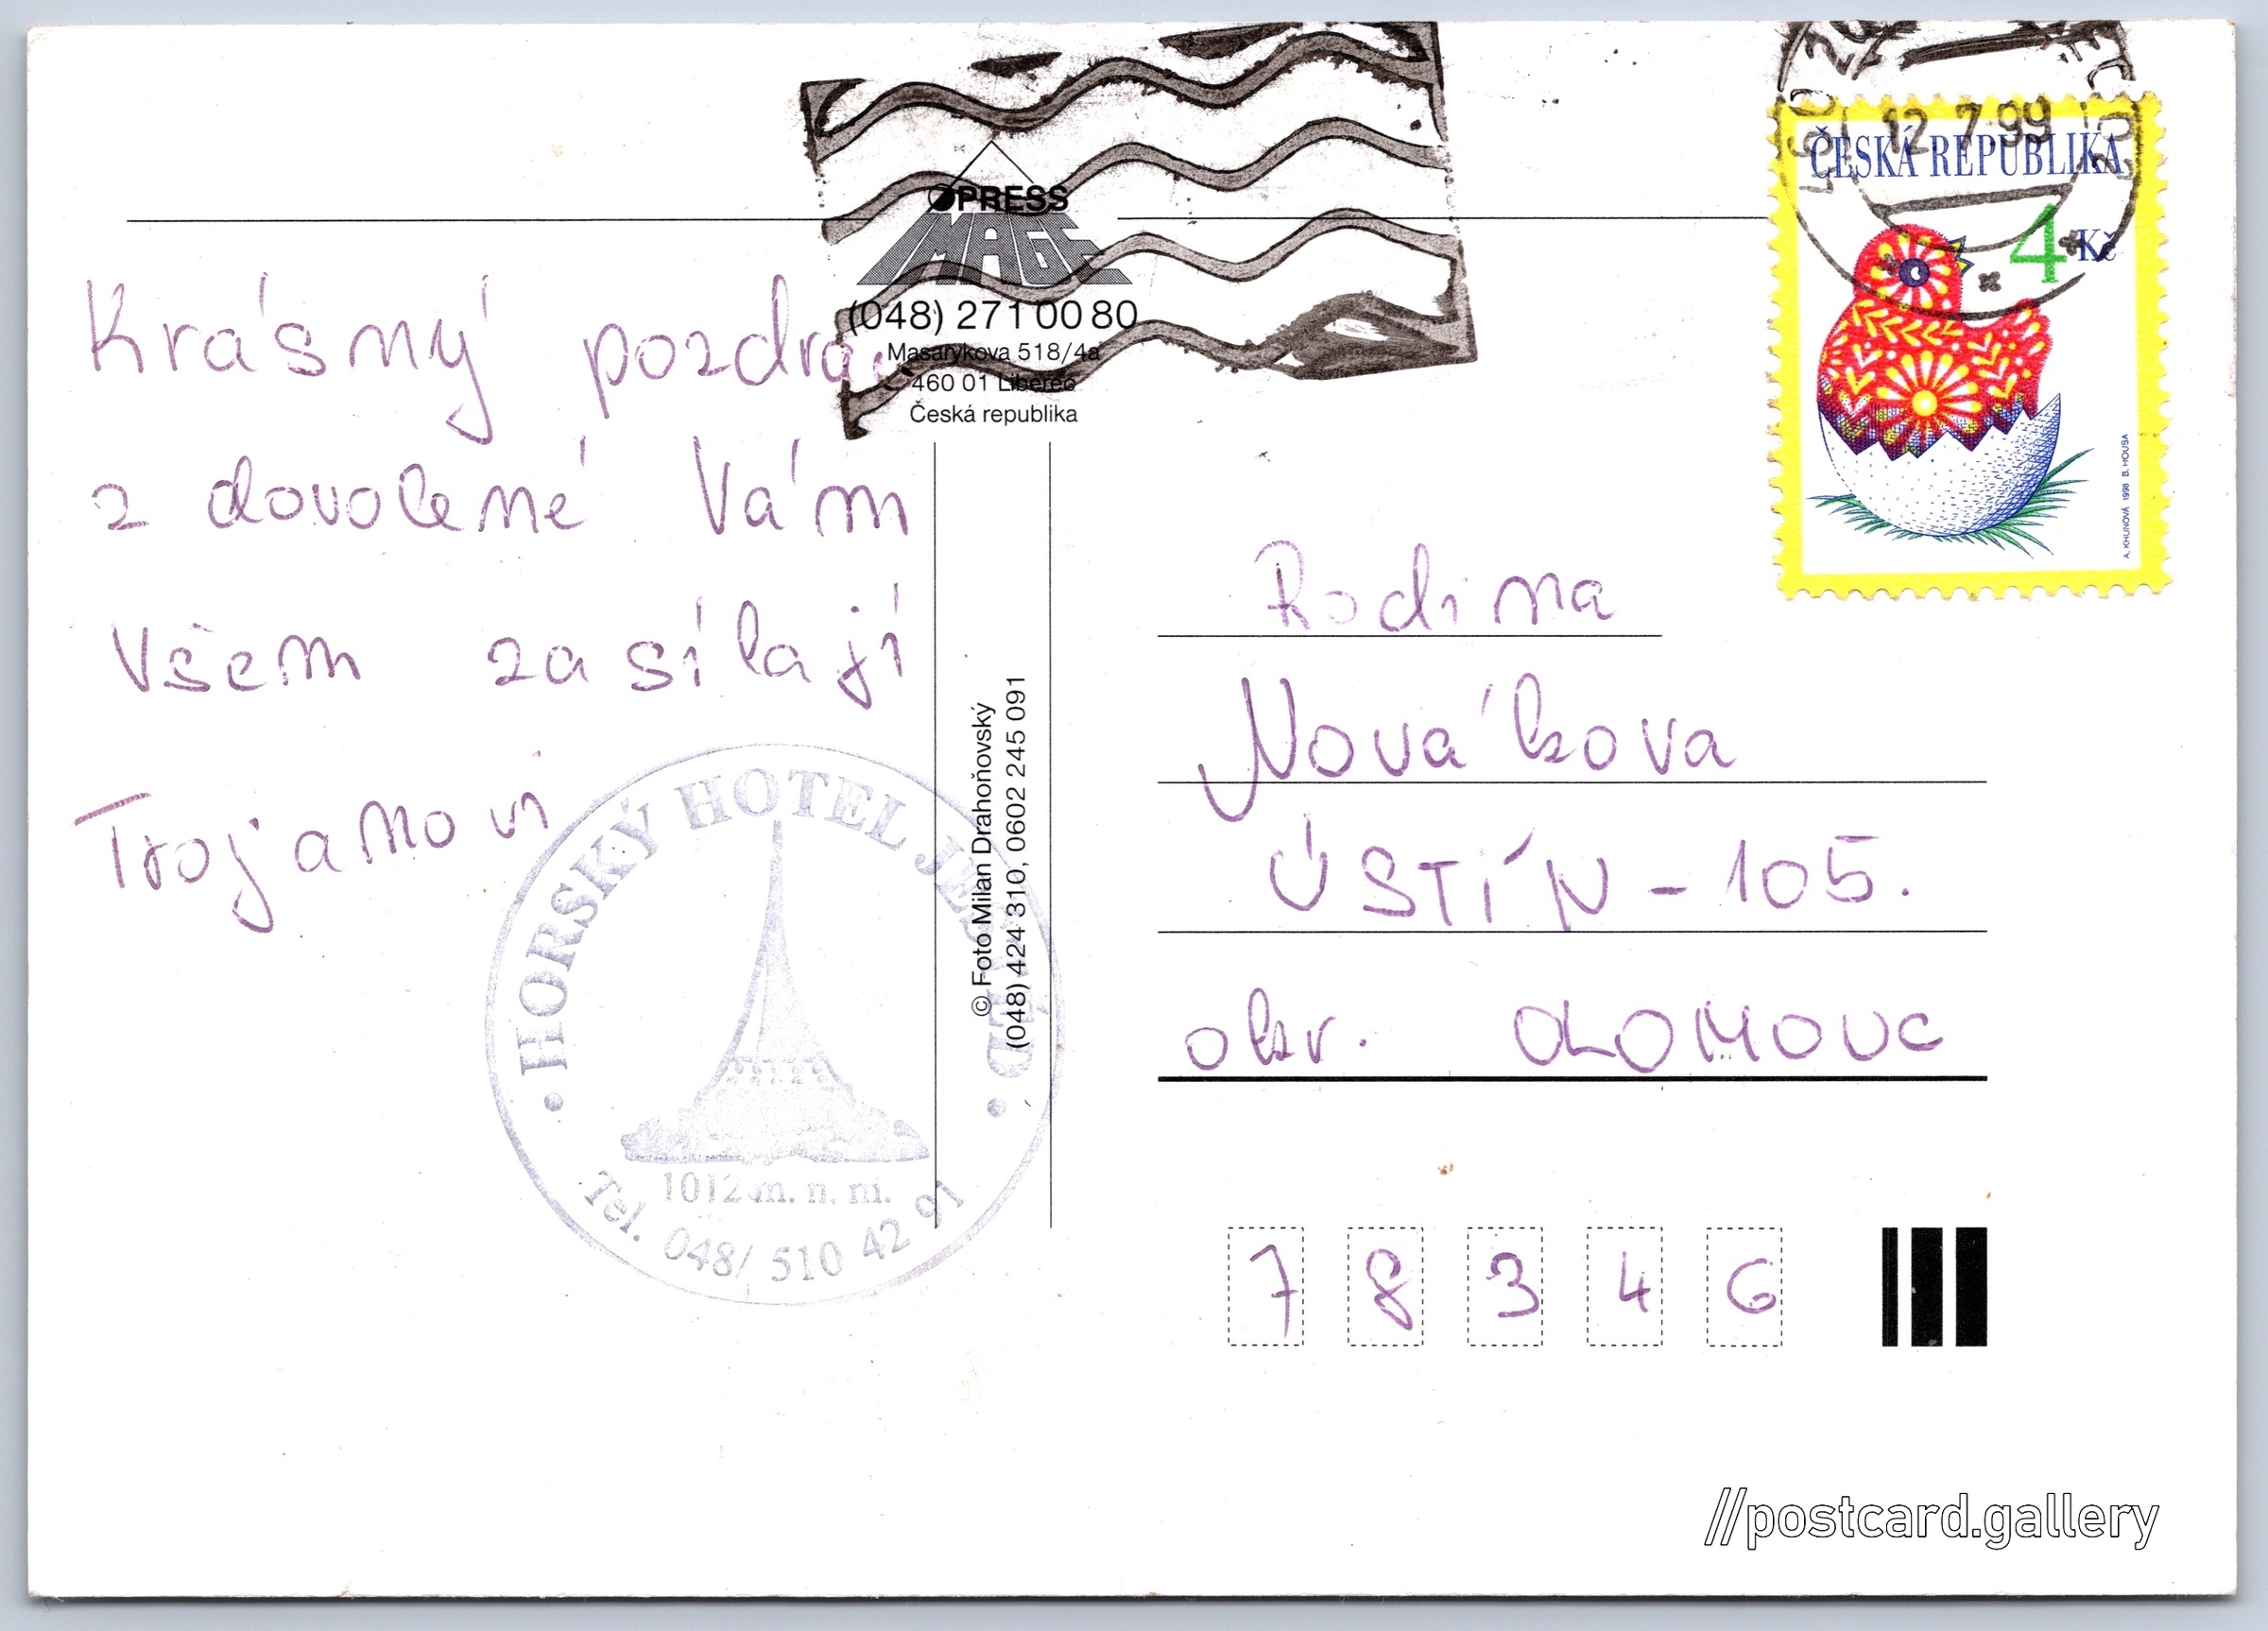 12.7.99
ČESKÁ REPUBLIKA
4 Kč
A. KHUNOVÁ 1998 B. HOUSA
PRESS
IMAGE
(048) 271 00 80
Masarykova 518/4a
460 01 Liberec
Česká republika
Krásný pozdrav
z dovolené Vám
všem zasílají
Trojanovi
HORSKÝ HOTEL JEŠTĚD
1012 m. n. m.
Tel. 048/ 510 42 91
© Foto Milan Drahoňovský
(048) 424 310, 0602 245 091
Rodina
Novákova
ÚSTÍN - 105.
okr. OLOMOUC
7 8 3 4 6
//postcard.gallery